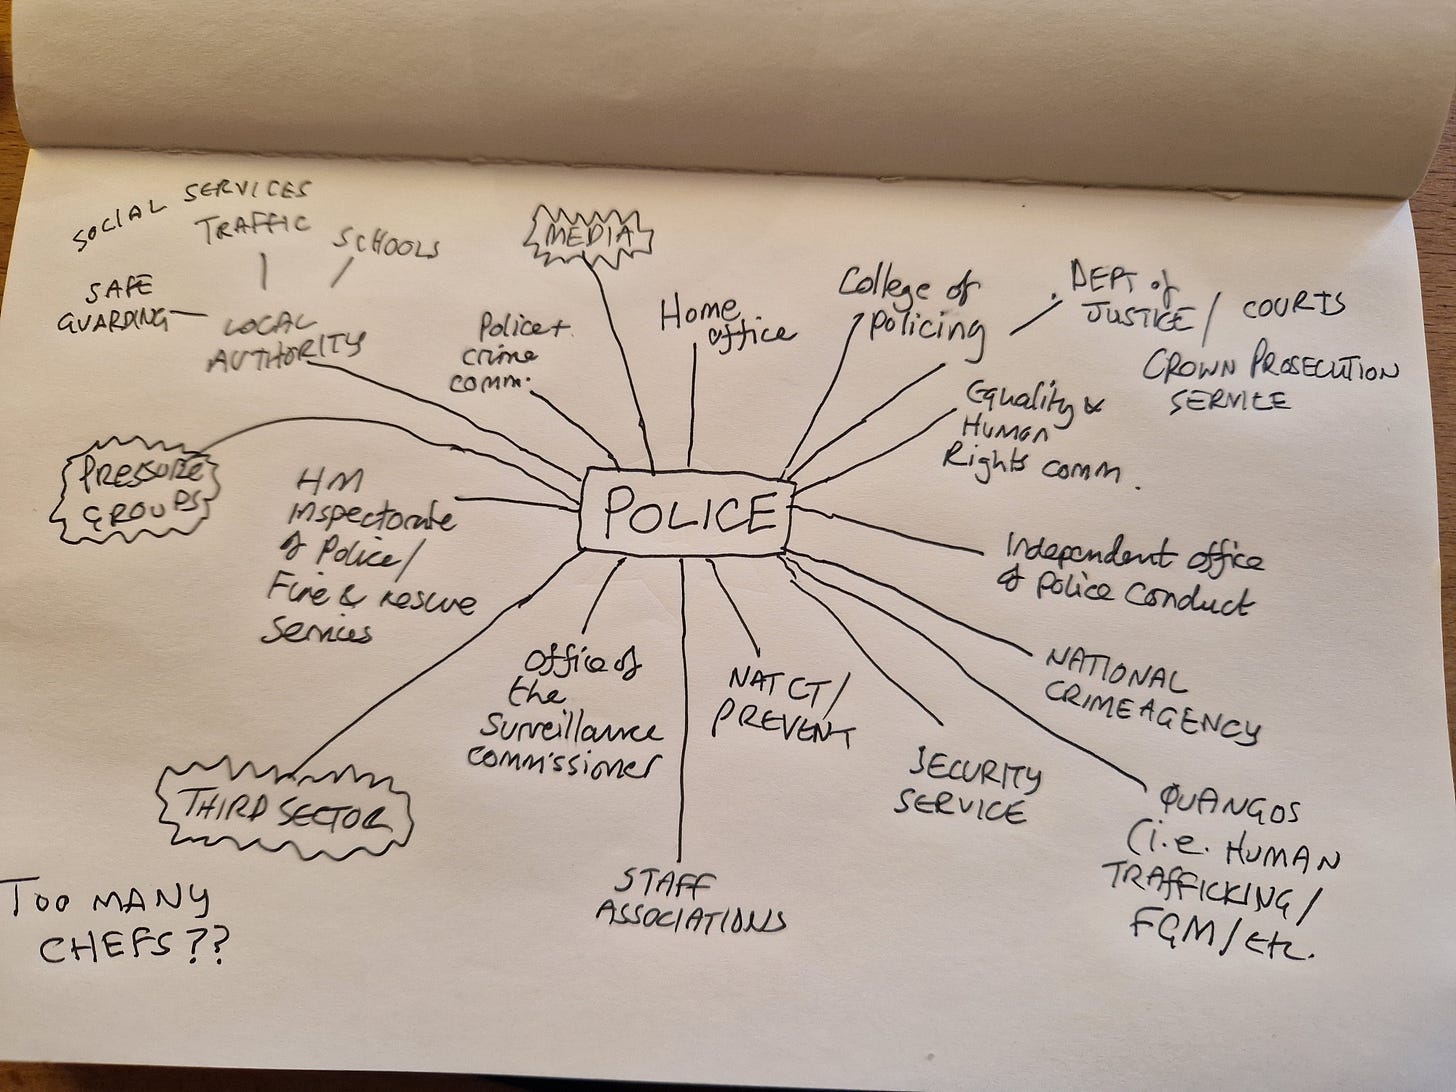 SOCIAL SERVICES
TRAFFIC
SCHOOLS
SAFE
GUARDING
LOCAL
AUTHORITY
Police +
crime
comm.
MEDIA
Home
office
College of
policing
DEPT of
JUSTICE / COURTS
CROWN PROSECUTION
SERVICE
Equality &
Human
Rights comm.
PRESSURE
GROUPS
HM
Inspectorate
of Police/
Fire & rescue
Services
POLICE
Independent office
of Police Conduct
NATIONAL
CRIME AGENCY
Office of
the
Surveillance
commissioner
NAT CT/
PREVENT
SECURITY
SERVICE
QUANGOS
(i.e. HUMAN
TRAFFICKING/
FGM/etc.
THIRD SECTOR
STAFF
ASSOCIATIONS
TOO MANY
CHEFS??